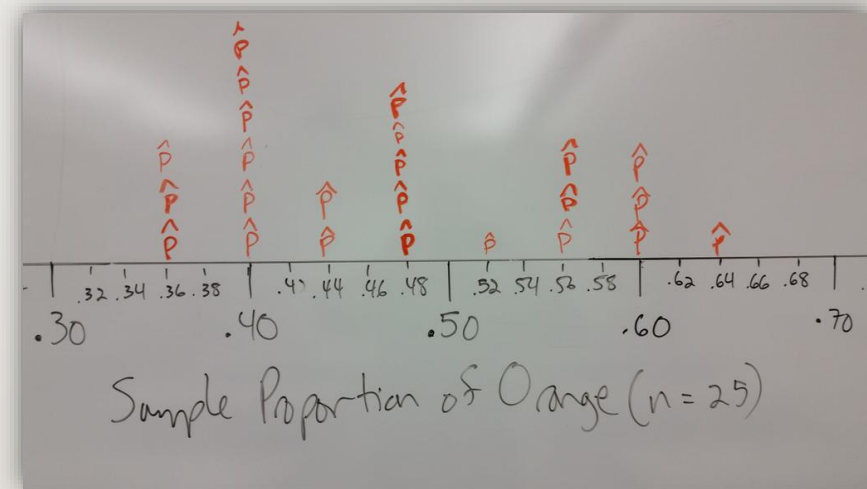 p̂
p̂
p̂ p̂
p̂
p̂ p̂ p̂ p̂ p̂
p̂ p̂ p̂ p̂ p̂ p̂
p̂ p̂ p̂ p̂ p̂ p̂ p̂ p̂
.32 .34 .36 .38 .44 .46 .48 .52 .54 .56 .58 .62 .64 .66 .68
.30 .40 .50 .60 .70
Sample Proportion of Orange (n = 25)